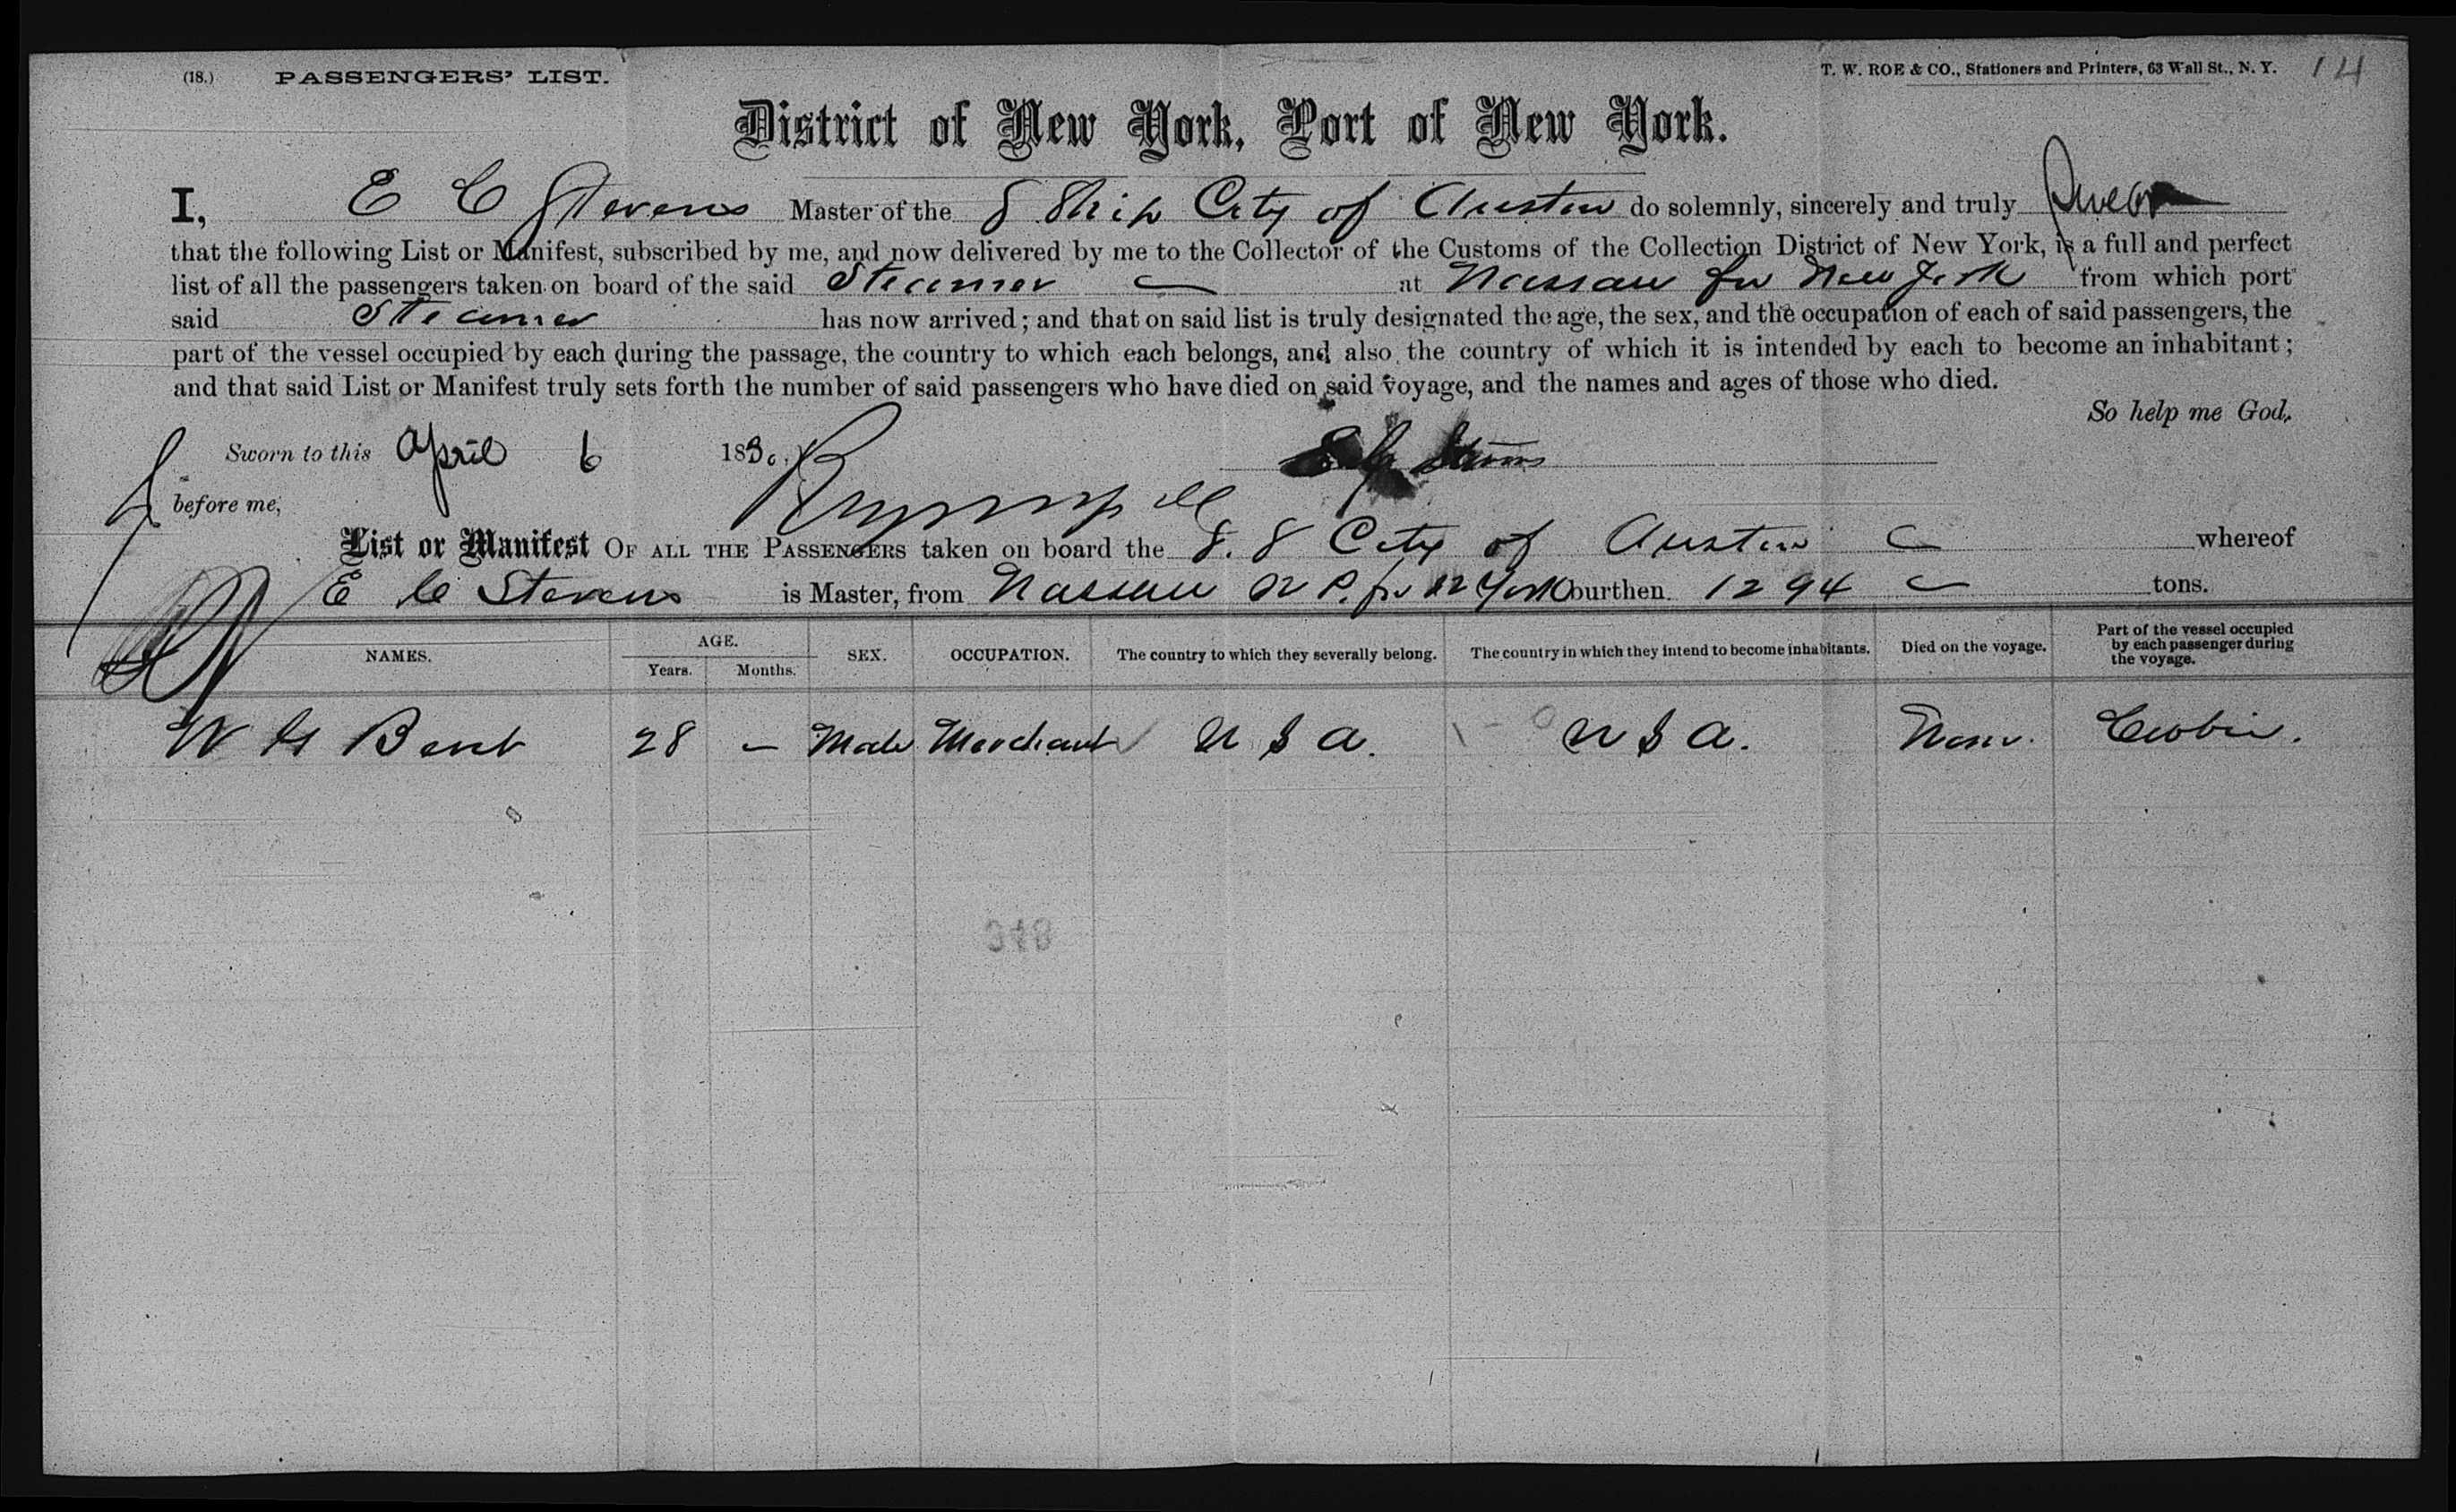 (18.) PASSENGERS' LIST. T. W. ROE & CO., Stationers and Printers, 63 Wall St., N. Y. 14
District of New York, Port of New York.
I, E C Stevens Master of the S Ship City of Austin do solemnly, sincerely and truly Swear
that the following List or Manifest, subscribed by me, and now delivered by me to the Collector of the Customs of the Collection District of New York, is a full and perfect
list of all the passengers taken on board of the said Steamer at Nassau for New York from which port
said Steamer has now arrived; and that on said list is truly designated the age, the sex, and the occupation of each of said passengers, the
part of the vessel occupied by each during the passage, the country to which each belongs, and also the country of which it is intended by each to become an inhabitant;
and that said List or Manifest truly sets forth the number of said passengers who have died on said voyage, and the names and ages of those who died.
So help me God.
Sworn to this April 6 1880. E C Stevens
before me,
List or Manifest OF ALL THE PASSENGERS taken on board the S. S City of Austin whereof
E C Stevens is Master, from Nassau N P. for N York burthen 1294 tons.
NAMES. AGE. Years. Months. SEX. OCCUPATION. The country to which they severally belong. The country in which they intend to become inhabitants. Died on the voyage. Part of the vessel occupied by each passenger during the voyage.
W H Bent 28 – Male Merchant U S A. U S A. None. Cabin.
348